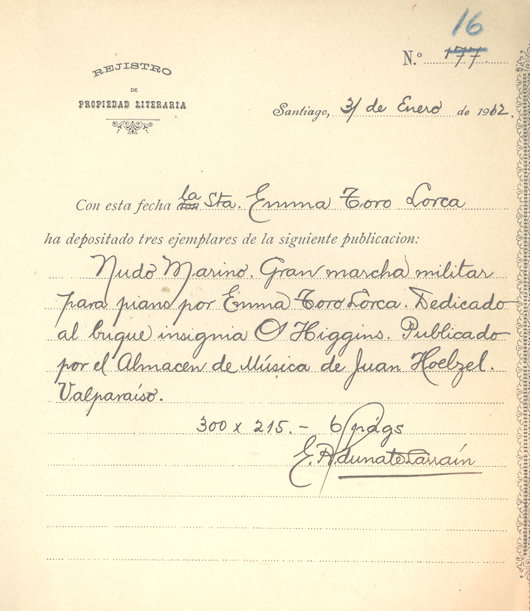 16
N.° 177.
REJISTRO
DE
PROPIEDAD LITERARIA
Santiago, 31 de Enero de 1912.
la
Con esta fecha don Sta. Emma Toro Lorca
ha depositado tres ejemplares de la siguiente publicacion:
Nudo Marino. Gran marcha militar
para piano por Emma Toro Lorca. Dedicado
al buque insignia O'Higgins. Publicado
por el Almacén de Música de Juan Hoelzel.
Valparaíso.
300 x 215.- 6 págs
E. Aldunate Larraín